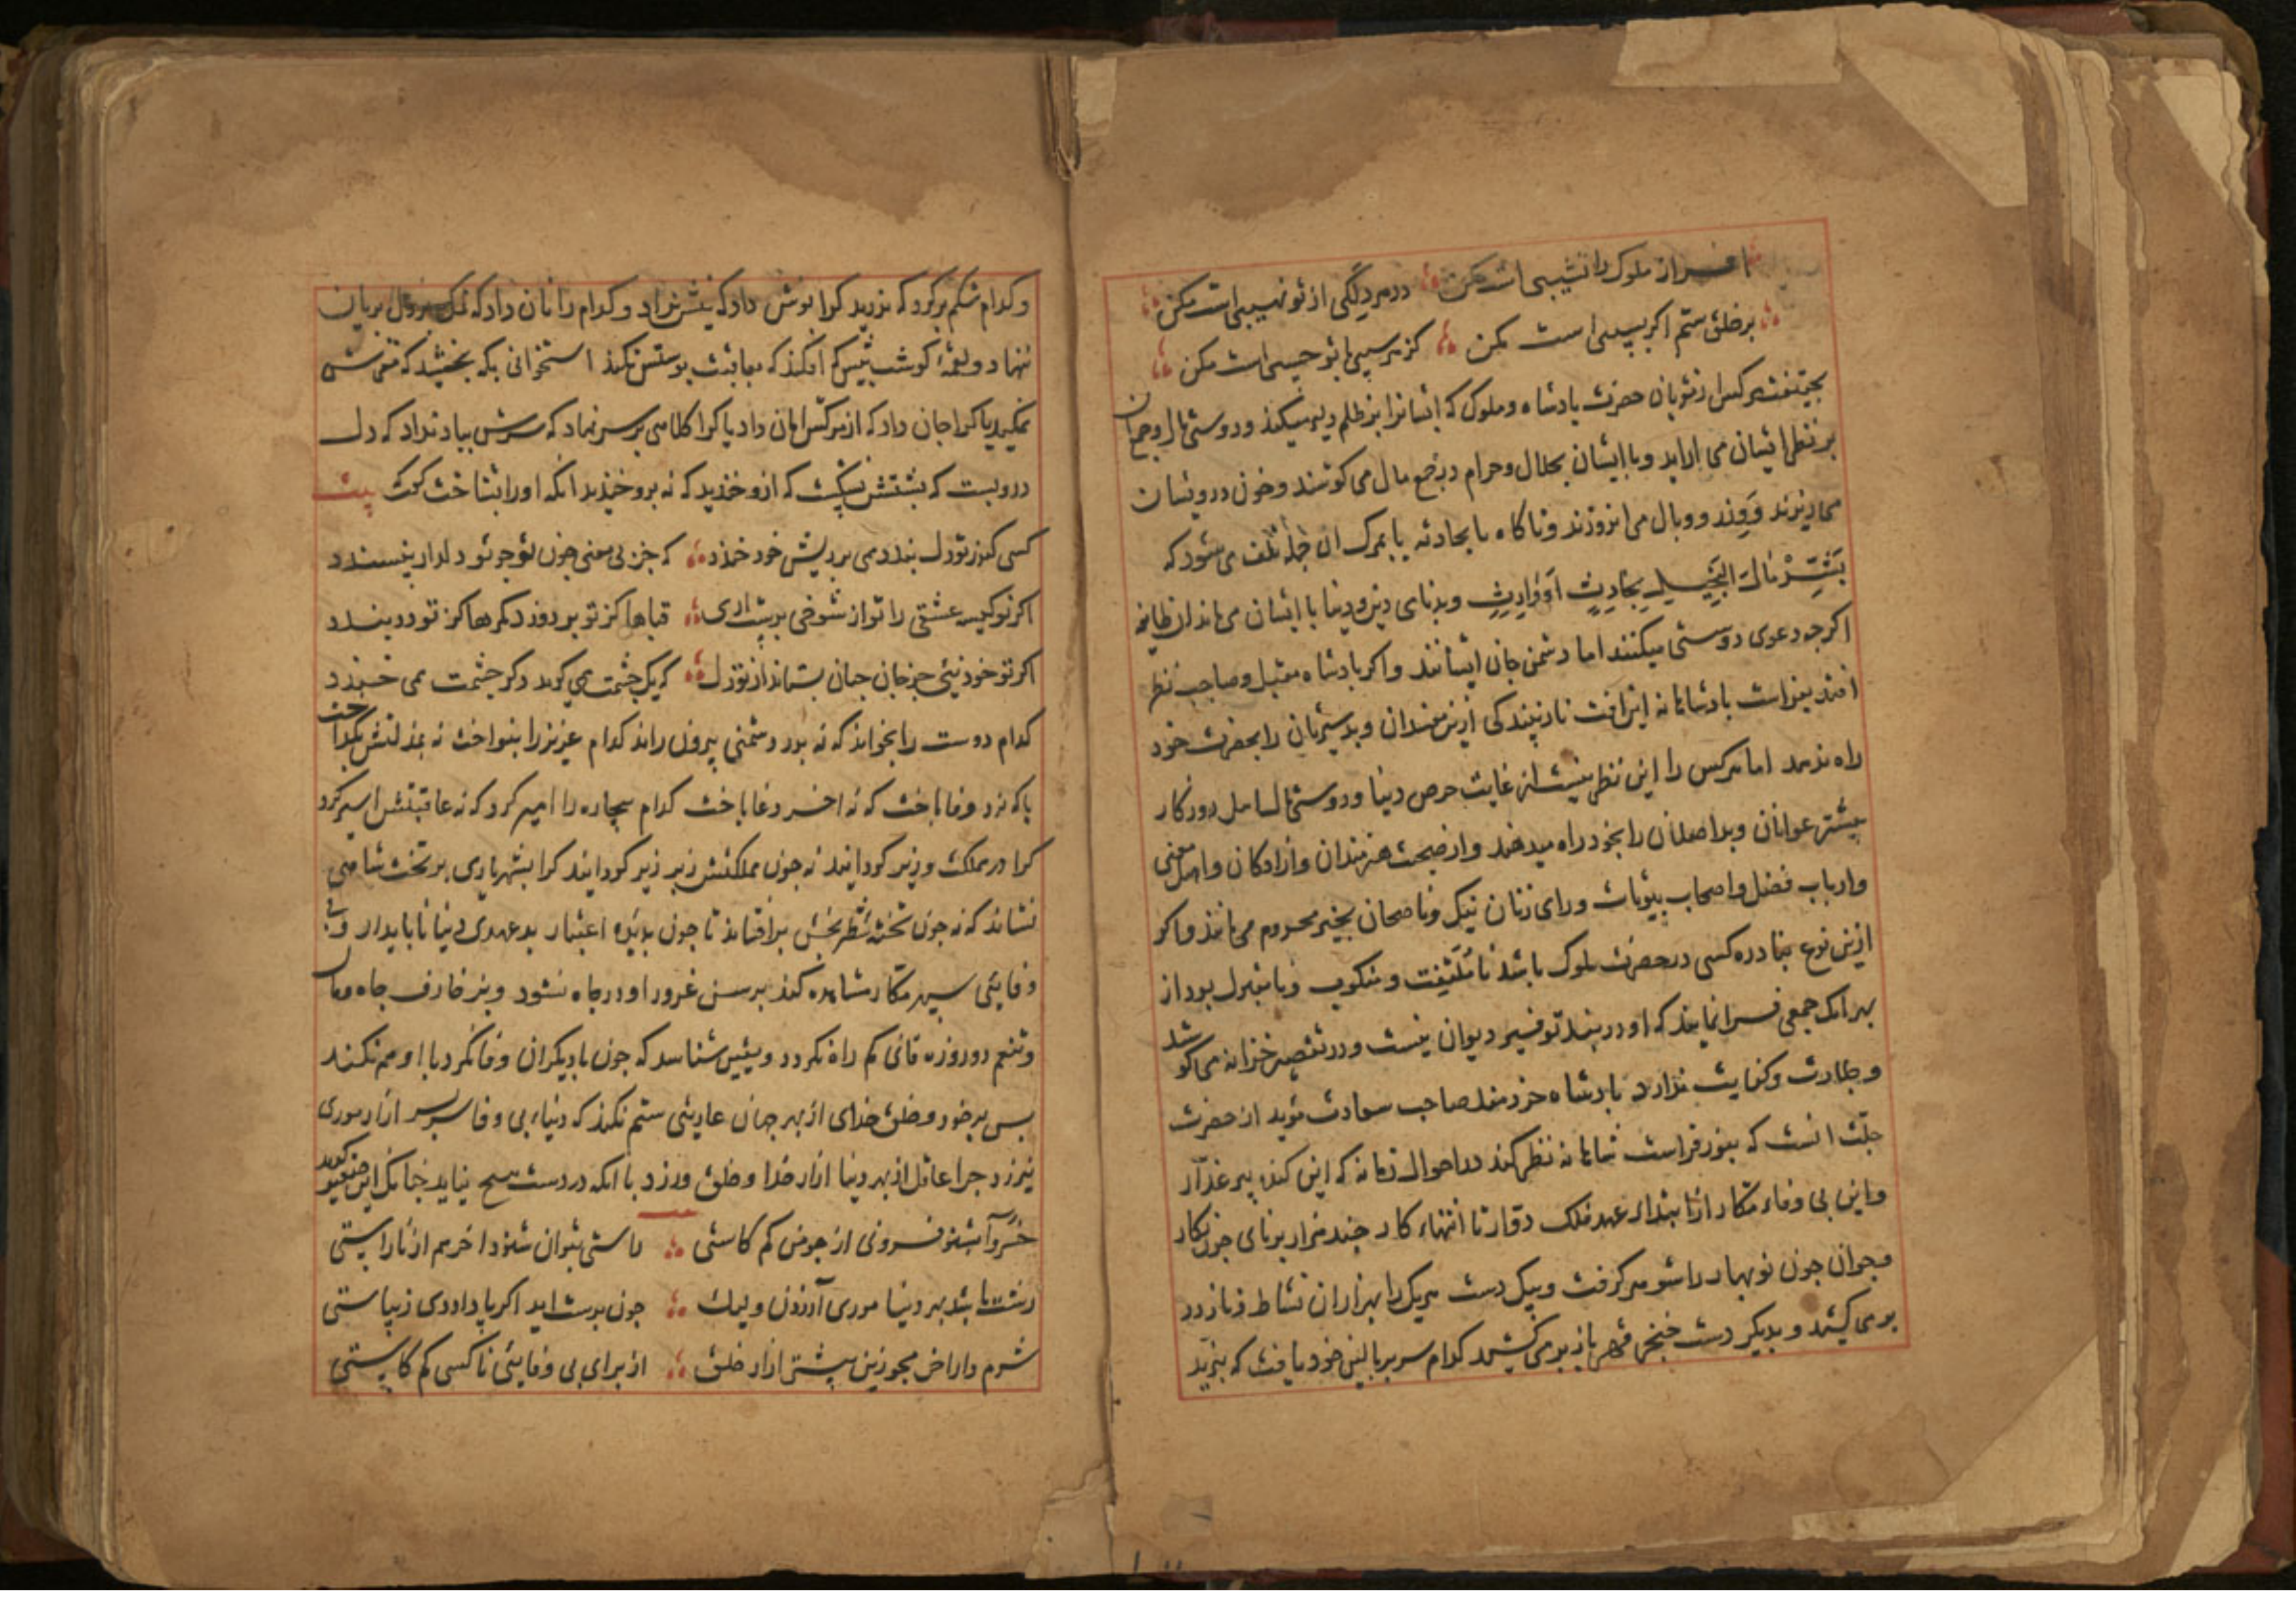 افسر از ملوک را نشیبی است مکن در مردلگی از تو نهیبی است مکن
بر خلق ستم اکر بسیبی است مکن کز هر سیبی با تو حسیبی است مکن
بحقیقت هرکس از نوبان حضرت پادشاه و ملوک که ایشانرا بر ظلم دلیر میکند و دوستی مال و جهان
بر نظر ایشان می اراید و با ایشان بحلال و حرام در جمع مال می کوشند و خون درویشان
می ریزند و وزر و وبال می اندوزند و ناکاه با بحادثه یا بمرک ان جمله تلف می شود که
بَشِّرْ مٰالَ الْبَخٖیلِ بِحٰادِثٍ اَوْ وٰارِثٍ و بدنامی دین و دنیا با ایشان می ماند ان طایفه
اکرجه دعوی دوستی میکنند اما دشمن جان ایشانند و اکر پادشاه مقبل و صاحب نظر
افتد بفراست پادشاهانه این افت نادیند کی ازین مفسدان و بدسیرتان را بحضرت خود
راه ندهد اما هرکس را این نظر نیست از غایت حرص دنیا و دوستی مال اهل روزکار
بیشتر عوانان و بداصلان را بخود راه میدهند و از صحبت هنرمندان و ازادکان و اهل معنی
و ارباب فضل و اصحاب بیوتات و رای زنان نیک و ناصحان بخیر محروم می مانند و اکر
ازین نوع بنادره کسی در حضرت ملوک باشد نامُلْتَفَت و منکوب و نامقبول بود از
بهر انک جمعی فرا نمایند که او در بند توفیر دیوان نیست و در تقصیر خزانه می کوشد
و جلادت و کفایت ندارد پادشاه خردمند صاحب سعادت مؤید از حضرت
جلّت انست که بنور فراست شاهانه نظر کند در احوال زمانه که این کنده پیر غدّار
و این بی وفاء مکّار از ابتداء عهد فلک دوّار تا انتهاء کار جند هزار برنای جون نکار
و جوان جون نوبهار را شوهر کرفت و بیک دست هریک را بهزاران نشاط و ناز در
بر می کشد و بدیکر دست خنجر قهر باز بر می کشد کدام سر بر بالین خود یافت که نبرید
و کدام شکم پر کرد که ندرید کرا نوش داد که نیش نزد و کدام را نان داد که نمک بر دل بریان
ننهاد و لقمهٔ کوشت پیش کم افکند که بعاقبت پوستش نکند استخوانی بکه بخشید که مغزش
نمکید یا کرا جان داد که از مرکش امان داد یا کرا کلاهی بر سر نهاد که سرش بباد نداد که دل
در و بست که پشتش نشکست که ازو خندید که نه برو خندید انکه او را بشناخت کفت بیت
کسی کندر تو دل بندد همی بر ریش خود خندد که جز بی معنی جون تو جو تو دلدار نپسندد
اکر نو کیسه عشقی را تو از شوخی بدست اری قباها کز تو بر دوزد کمرها کز تو در بندد
اکر تو خود نیی جز جان جنان بستاند از تو دل که یک جشمت همی کرید دکر جشمت همی خندد
کدام دوست را بخواند که نه بدر دشمنی بیرون راند کدام عزیز را بنواخت نه بمذلتش بکداخت
با که نرد وفا باخت که نه اخر دغا باخت کدام بیچاره را امیر کرد که نه عاقبتش اسیر کرد
کرا در مملکت وزیر کردانید نه جون مملکتش زیر زبر کردانید کرا بشهریاری بر تخت شاهی
نشاند که نه جون تخته شطرنجش برافشاند تا جون بدیدهٔ اعتبار بدعهدی دنیا ناپایدار و بی
وفایئی سپهر مکّار مشاهده کند برسن غرور او در چاه نشود و بزخارف جاه و مال
و تنعم دو روزه فانی کم راه نکردد و یقین شناسد که جون با دیکران وفا نکرد با او هم نکند
پس بر خود و خلق خدای از بهر جهان عاریتی ستم نکند که دنیاء بی وفا سربسر ازار موری
نیرزد جرا عاقل از بهر دنیا ازار خدا و خلق ورزد با انکه در دست هیج نیاید جنانک این ضعیف کوید
خسروا مشنو فسرونی از جومن کم کاستی راستی بتوان شنود اخر هم از ناراستی
زشت باشد بهر دنیا موری آزردن ولیک جون بدست اید اکر پا دادی زیباستی
شرم دار اخر مجو زین بیشتر ازار خلق از برای بی وفایئی ناکسی کم کاستی